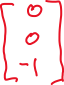 0
0
-1